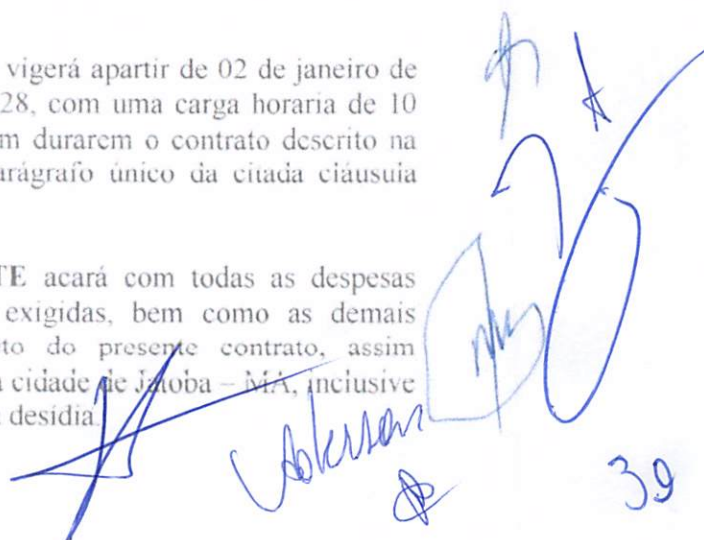 vigerá apartir de 02 de janeiro de
28, com uma carga horaria de 10
m durarem o contrato descrito na
arágrafo único da citada cláusula
TE acará com todas as despesas
exigidas, bem como as demais
to do presente contrato, assim
a cidade de Jatoba – MA, inclusive
a desídia.
39